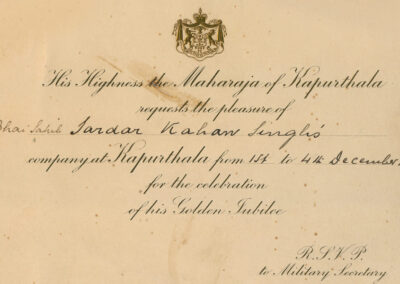 His Highness the Maharaja of Kapurthala
requests the pleasure of
Bhai Sahib Sardar Kahan Singh's
company at Kapurthala from 1st to 4th December.
for the celebration
of his Golden Jubilee
R.S.V.P.
to Military Secretary